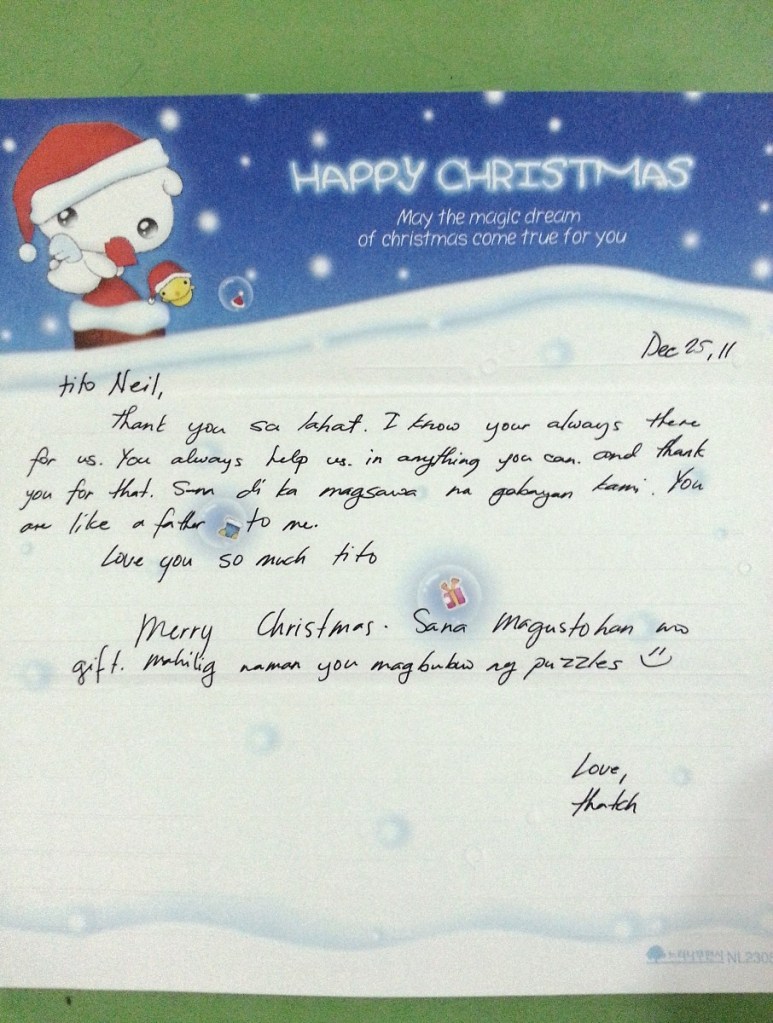 HAPPY CHRISTMAS
May the magic dream
of christmas come true for you
Dec 25, 11
tito Neil,
thank you sa lahat. I know your always there
for us. You always help us in anything you can. and thank
you for that. di ka magsawa na gabayan kami. You
are like a father to me.
Love you so much tito
Merry Christmas. Sana Magustohan mo
gift. mahilig naman you magbubuo ng puzzles
Love,
thatch
NL2305